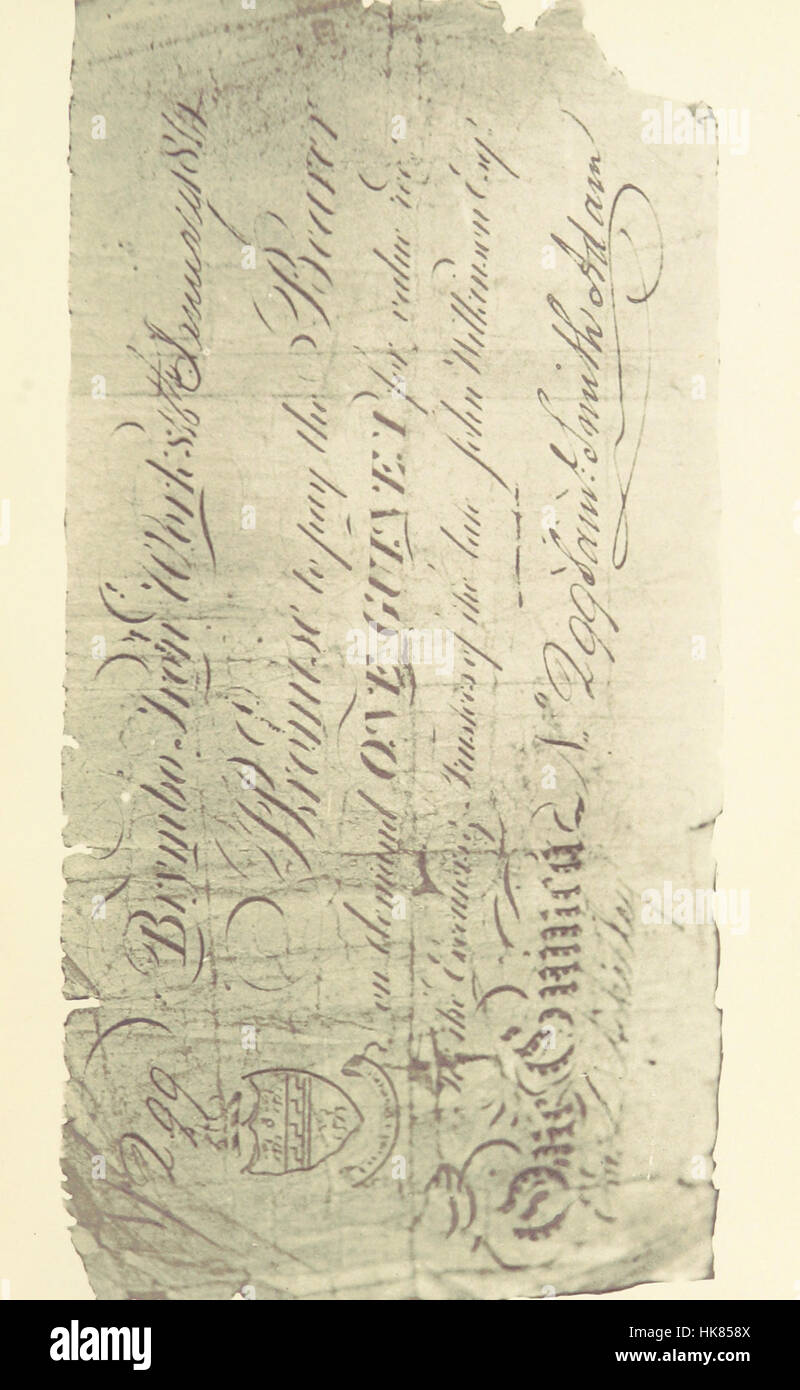 No 299
Brymbo Iron Works 8th January 1814
I Promise to pay the Bearer
on demand ONE GUINEA for value recd.
the Executors & Trustees of the late John Wilkinson Esqr.
One Guinea No. 299 Saml: Smith Adam
a
alamy
alamy stock photo
HK858X
www.alamy.com